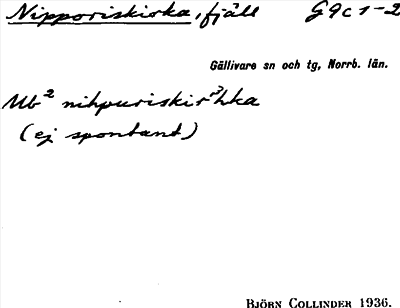 Nipporiskirka, fjäll G9c1-2
Gällivare sn och tg, Norrb. län.
Ub² nihpuriskir'hka
(ej spontant)
BJÖRN COLLINDER 1936.